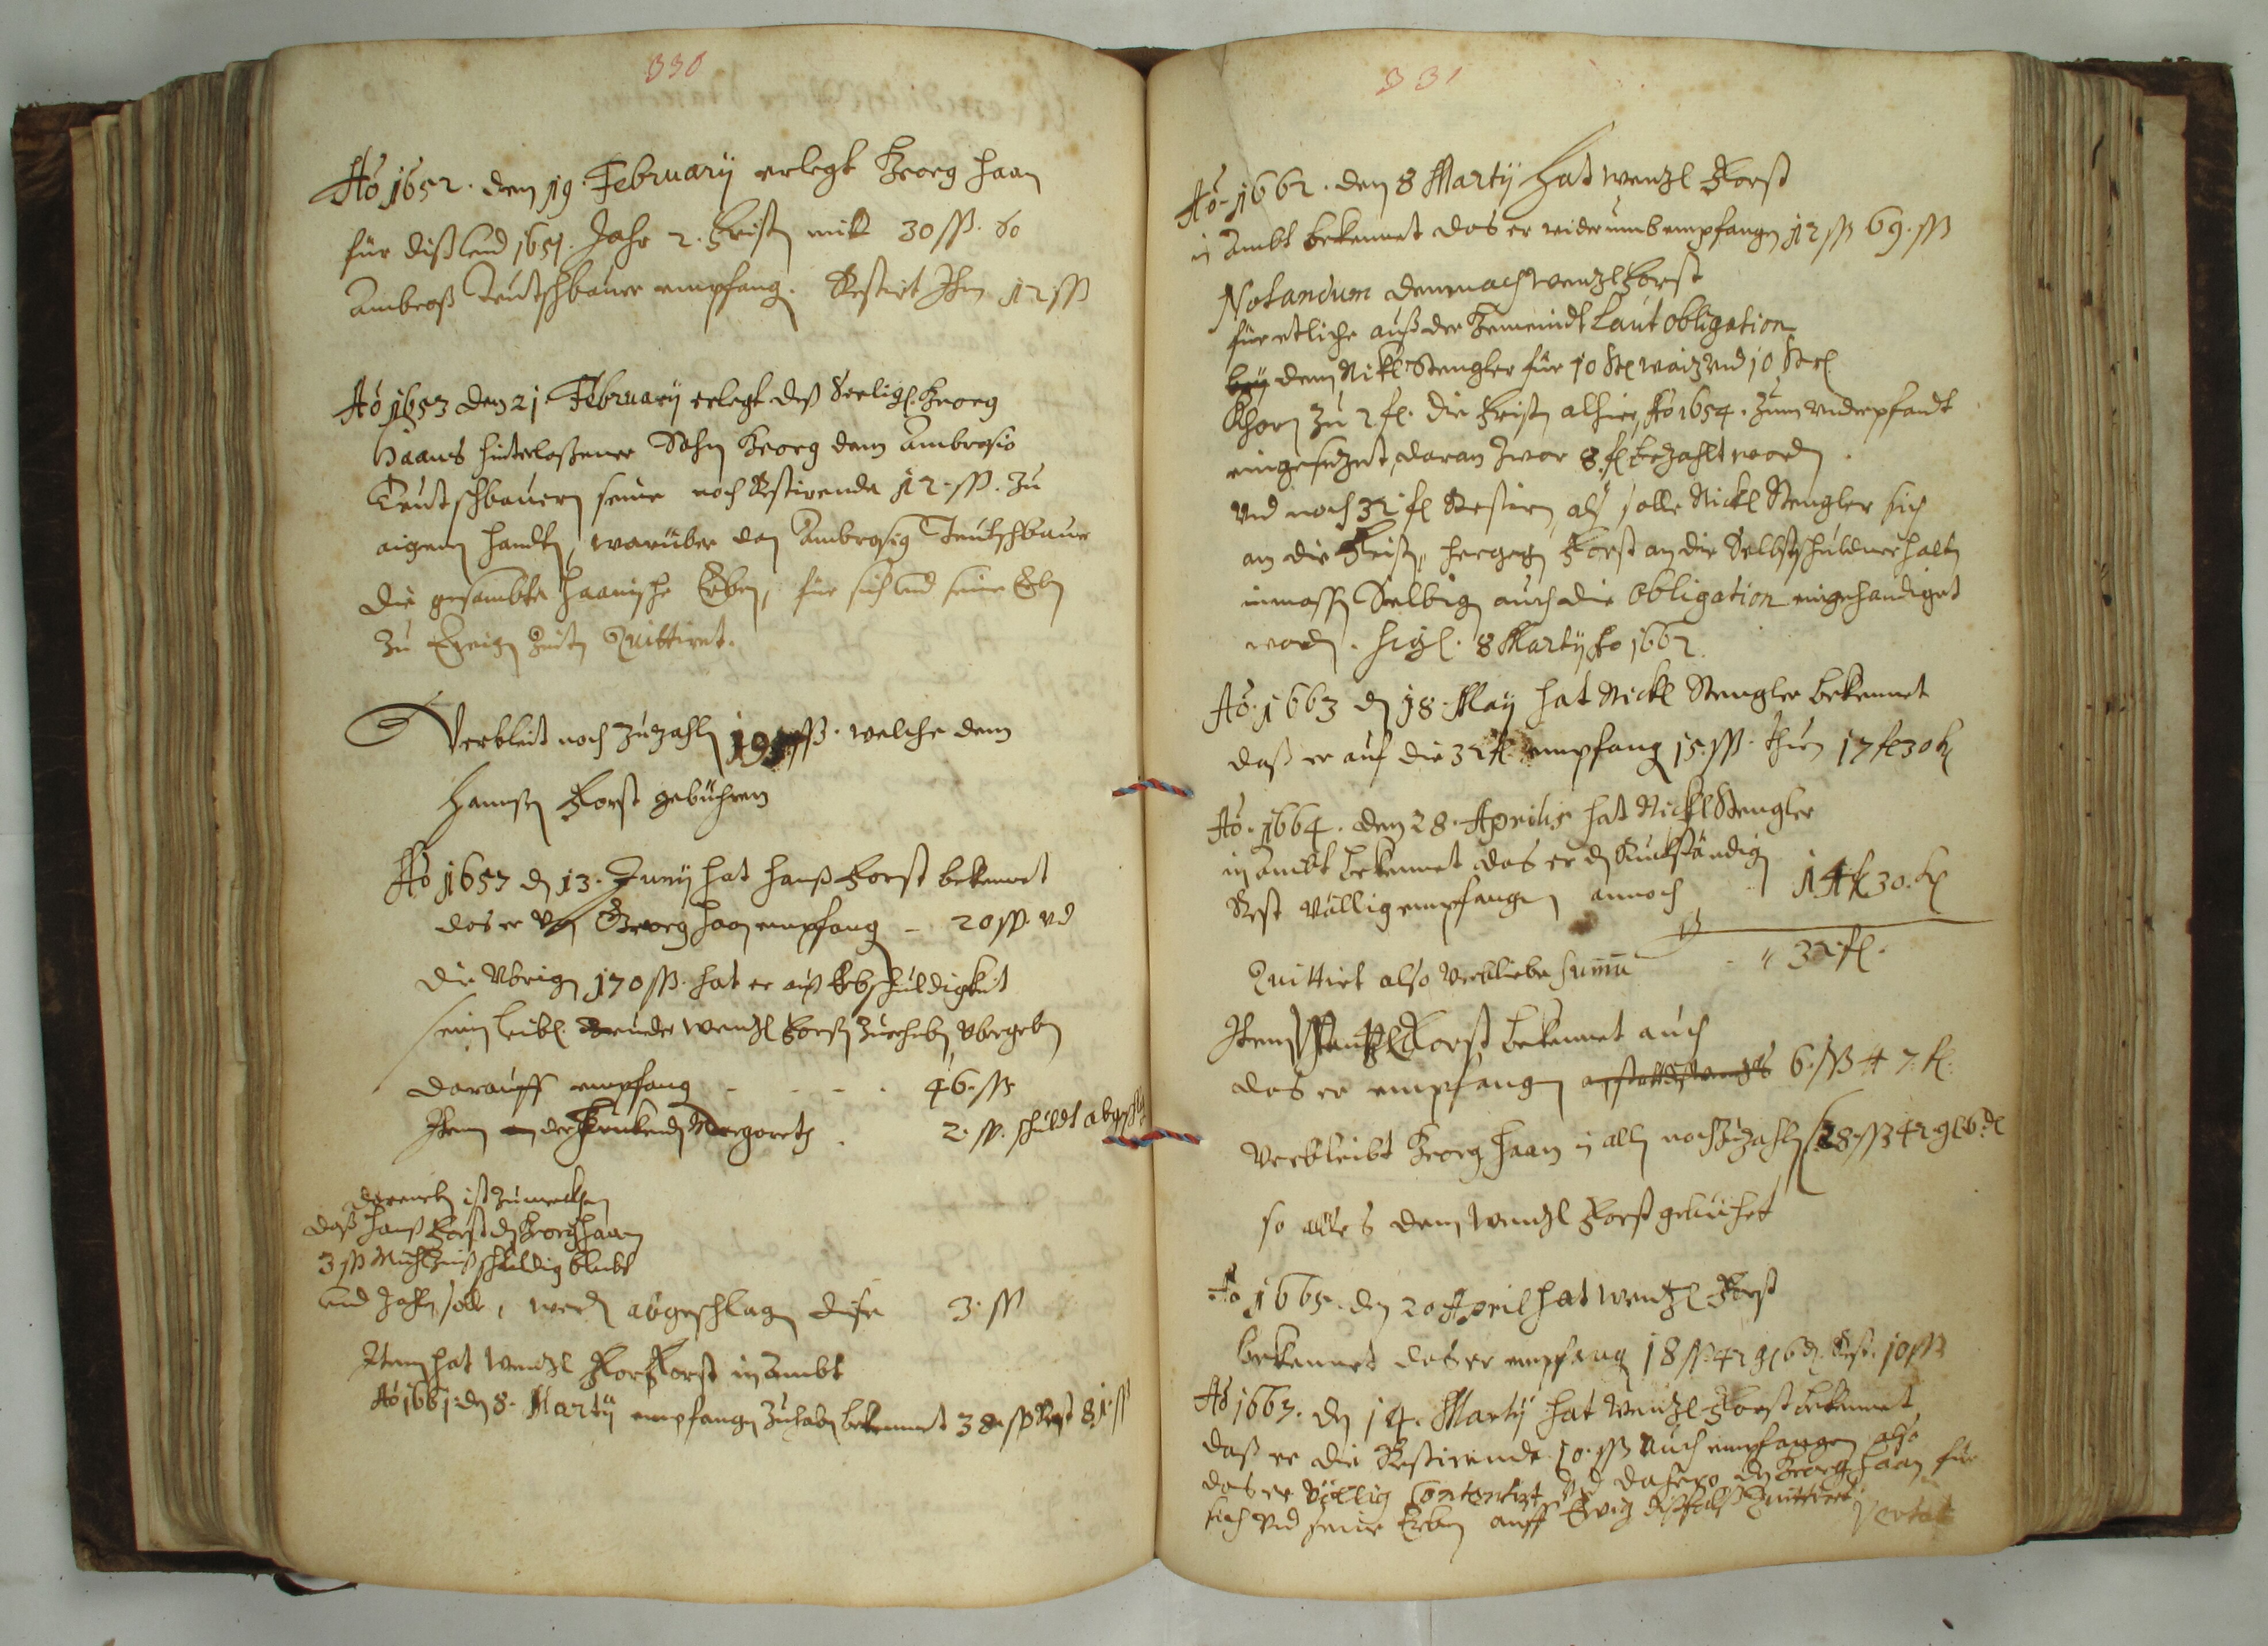 330
Aõ 1652. den 19. February erlegt Georg Haan
für diß und 1651. Jahr 2. Fristen mitt 30 ßß. so
Ambroß Teutschbauer empfang. Restirt Ihm 12 ßß
Aõ 1653 den 21. February erlegt deß Seelig. Georg
Haans hinterlaßener Sohn Georg dem Ambrosio
Teutschbauern seine noch Restirende 12. ßß. zu
aignen handen, warüber den Ambrosig Teutschbauer
die gesambte Haanische Erben, für sich und seine Erben
zu Ewigen Zeiten Quittiret.
Verbleit noch zuzahlen ßß. welche dem
Hannsen Forst gebühren
Aõ 1657 den 13. Juny hat Hanß Forst bekennet
das er von Georg Haan empfang - 20 ßß. vnd
die Vbrigen 170 ßß. hat er auß Erbschuldigkeit
sein leibl. Brueder Wentzl Forsten zuerheben Vbergeben
darauff empfang - - - . 46. ßß
Item der Margareth . 2. ßß. schuldt
ist zumerkhen
daß Hanß Forst den Georg Haan
3 ßß schuldig bleibt
und zahlen solle, werden abgeschlagen dise 3. ßß
Item hat Wentzl Forst in Ambt
Aõ 1661. den 8. Marty empfangen zuhaben bekennet 38 ßß Rest 81. ßß
331
Aõ 1662. den 8 Marty hat Wentzl Forst
in Ambt bekennet das er widerumb empfangen 12 ßß 69. ßß
Notandum demnach Wentzl Forst
für etliche auß der Gemeindt Laut obligation
bey dem Nikl Stengler für 10 Str waitz vnd 10 Str
Khorn zu 2 fl. die Fristen alhier, Aõ 1654. zum vnderpfandt
eingesetzet, daran zwar 8 fl bezahlt worden.
Vnd noch 32 fl Restiren, als solle Nickl Stengler sich
an die Fristen, hergegen Forst an die Selbstschuldner halten
inmassen Selbigen auch die obligation eingehändiget
worden. Sigl. 8 Marty Aõ 1662
Aõ. 1663 den 18. May hat Nickl Stengler bekennet
daß er auf die 32 fl. empfang 15. ßß. thuen 17 fl 30 k
Aõ. 1664. den 28. Aprilis hat Nickl Stengler
in Ambt bekennet das er den Ruckständigen
Rest völlig empfangen annoch 14 fl 30. k
Quittirt also Verbliebe Suma - " 32. fl.
Item Wentzl Forst bekennet auch
das er empfangen 6. ßß 7. fl.
Verbleibt Georg Haan in allen noch zuzahlen 28. ßß 42 gl 6 d
so alles dem Wentzl Forst gebühet
Aõ 1665. den 20 April hat Wentzl Forst
bekennet das er empfang 18 ßß 42 gl 6 d. Rest. 10 ßß
Aõ 1667. den 14. Marty hat Wentzl Forst bekennet
daß er die Restirende 10. ßß Auch empfangen also
das er Völlig Contentirt Vnd dahero den Georg Haan für
sich vnd seine Erben auff Ewig Quittiret.
Vertat